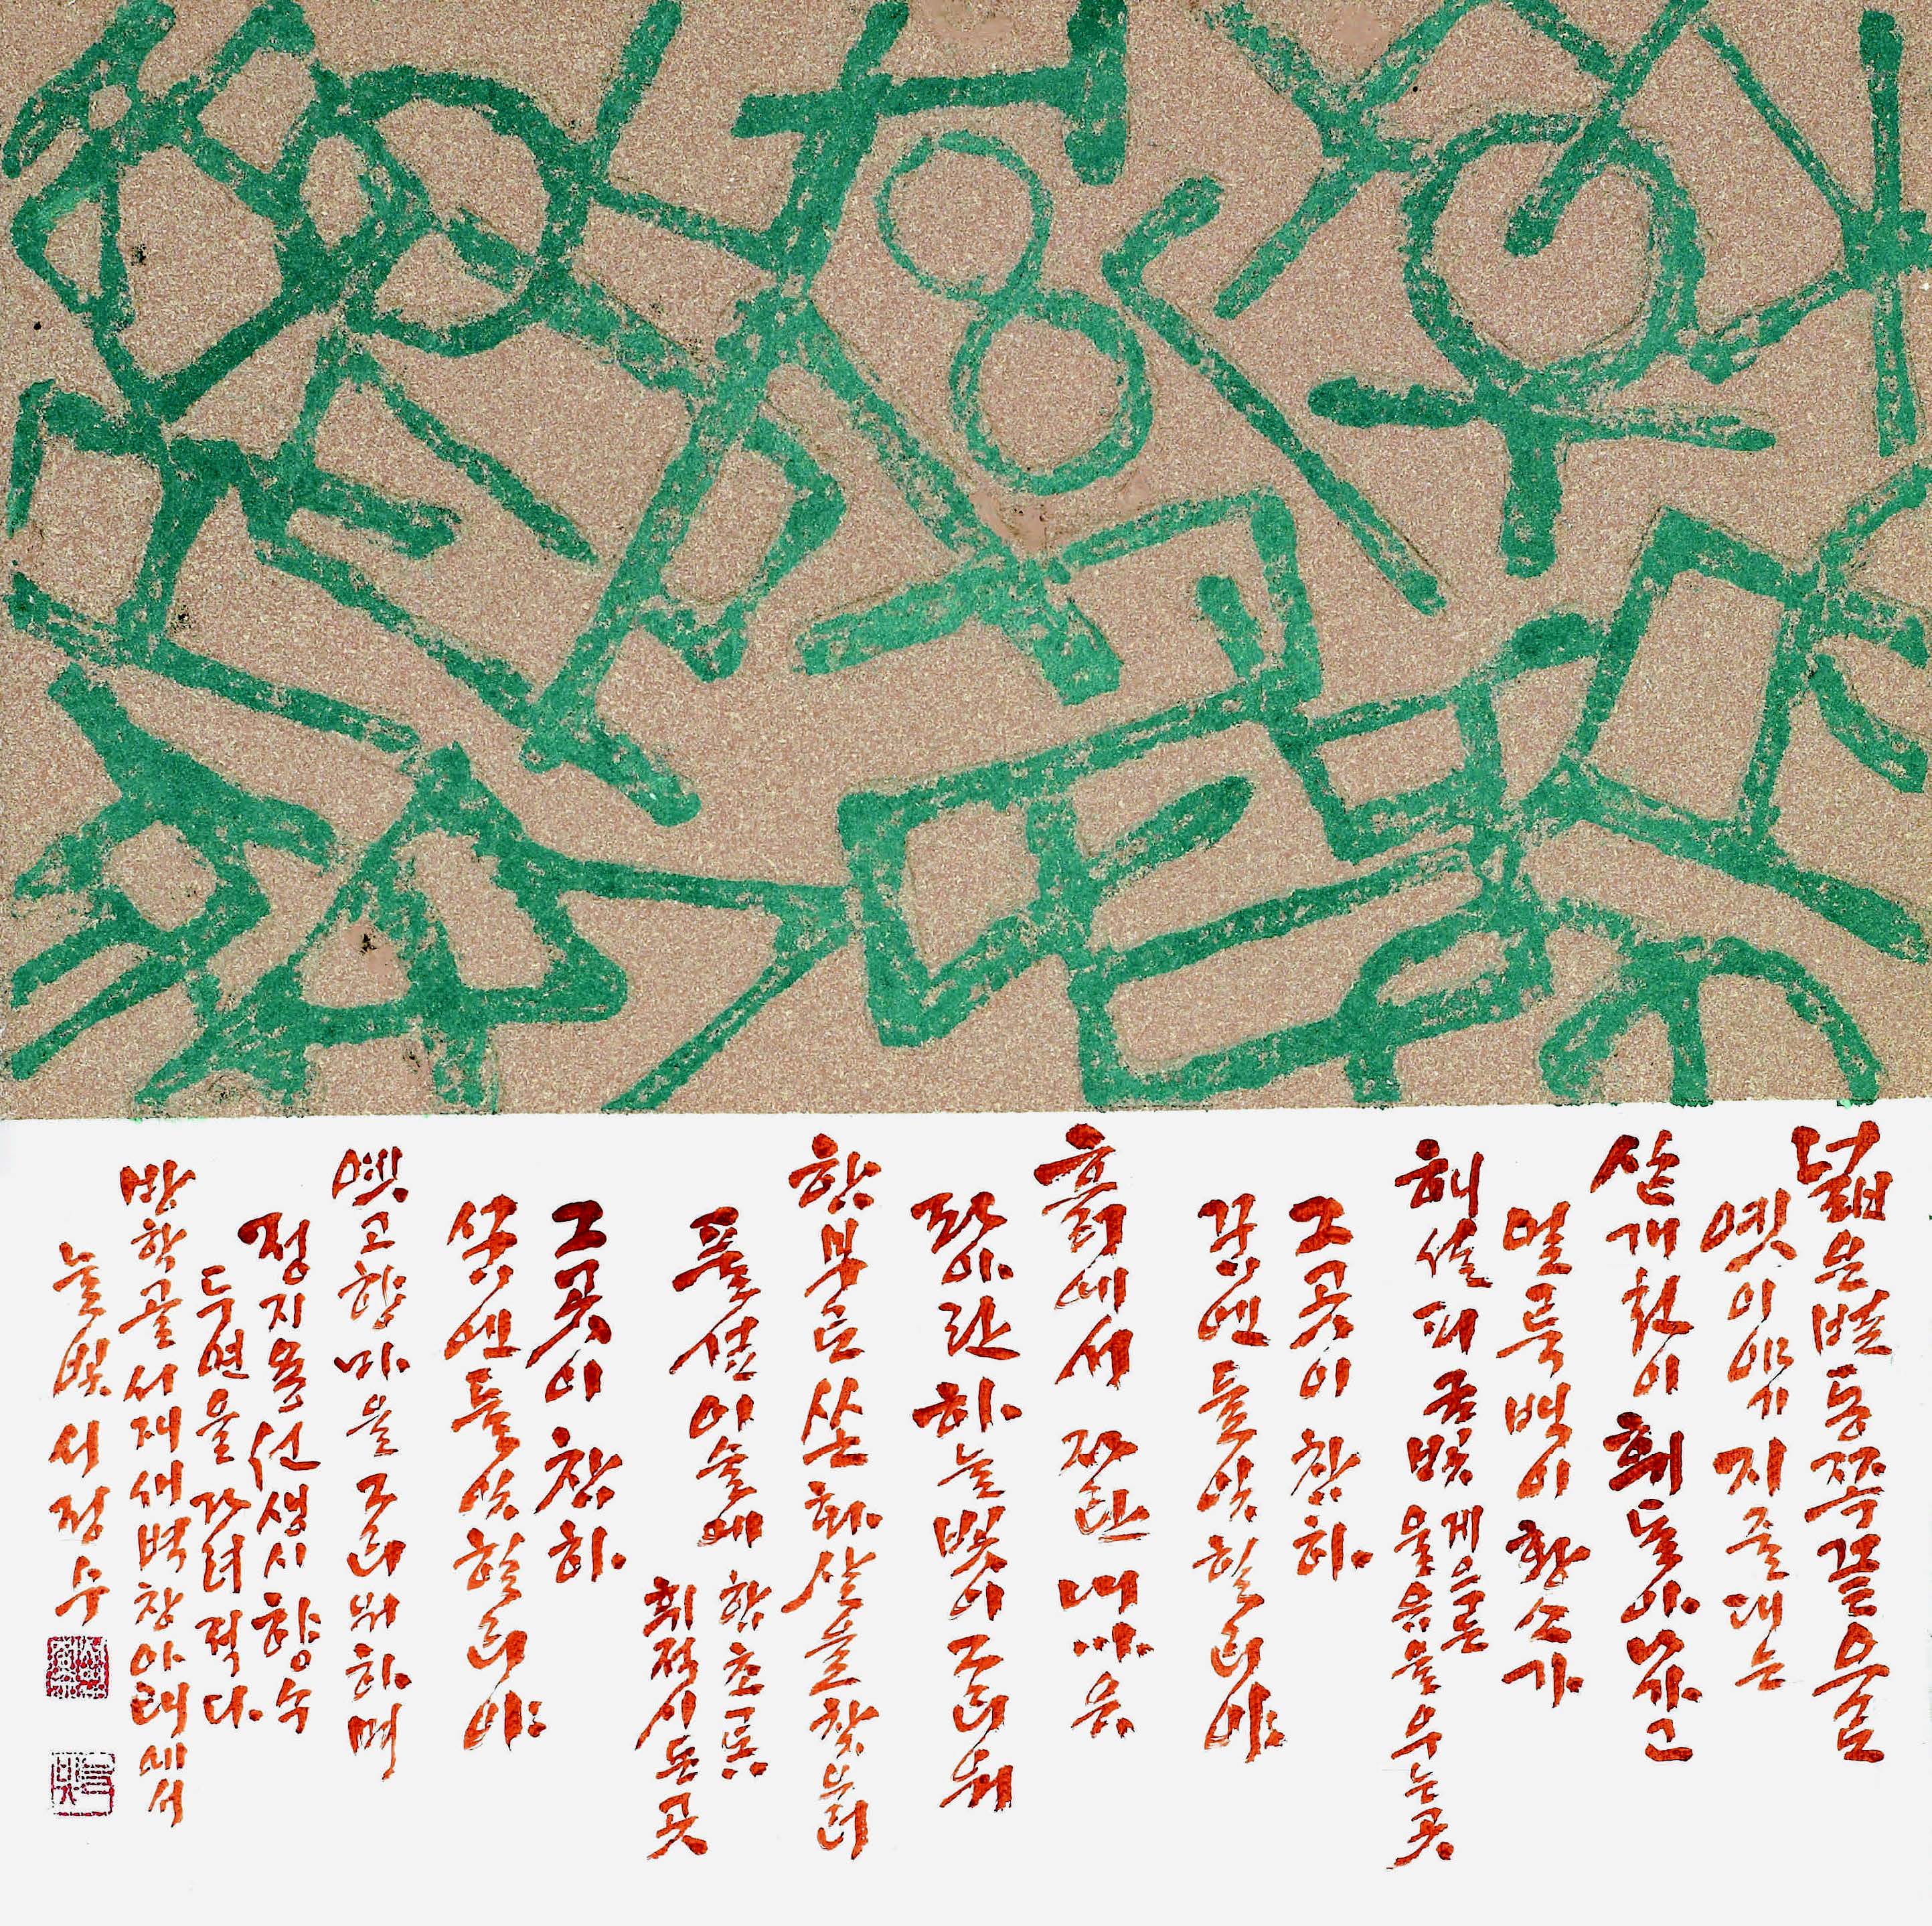 넓은벌 동쪽 끝으로
옛이야기 지줄대는
실개천이 휘돌아 나가고
얼룩백이 황소가
해설피 금빛 게으른 울음을 우는곳
그곳이 참하
꿈엔들 잊힐리야
흙에서 자란 내마음
파아란 하늘빛이 그리워
함부로 쏜 화살을 찾으러
풀섶 이슬에 함초롬 휘적시든곳
그곳이 참하
꿈엔들 잊힐리야
옛고향마을 그리워하며
정지용선생 시 향수
두연을 가려 적다.
방학골 서재 새벽창 아래에서
늘빛 서정수